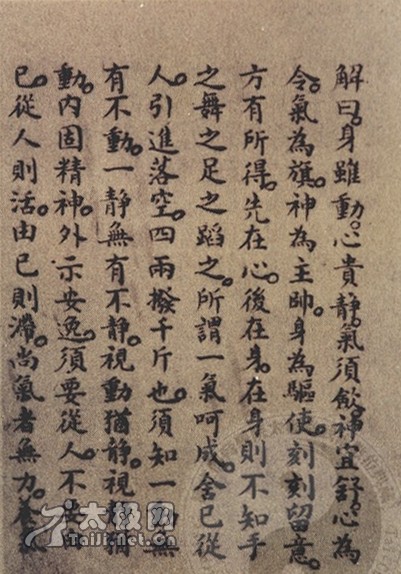 解曰。身雖動。心貴靜。氣須斂。神宜舒。心為
令。氣為旗。神為主帥。身為驅使。刻刻留意。
方有所得。先在心。後在身。在身則不知手
之舞之足之蹈之。所謂一氣呵成。舍已從
人。引進落空。四兩撥千斤也。須知一無
有不動。一靜無有不靜。視動猶靜。視猶
動。內固精神。外示安逸。須要從人。不
已。從人則活。由已則滯。尚氣者無力。養
太极网
Taiji.Net.Cn